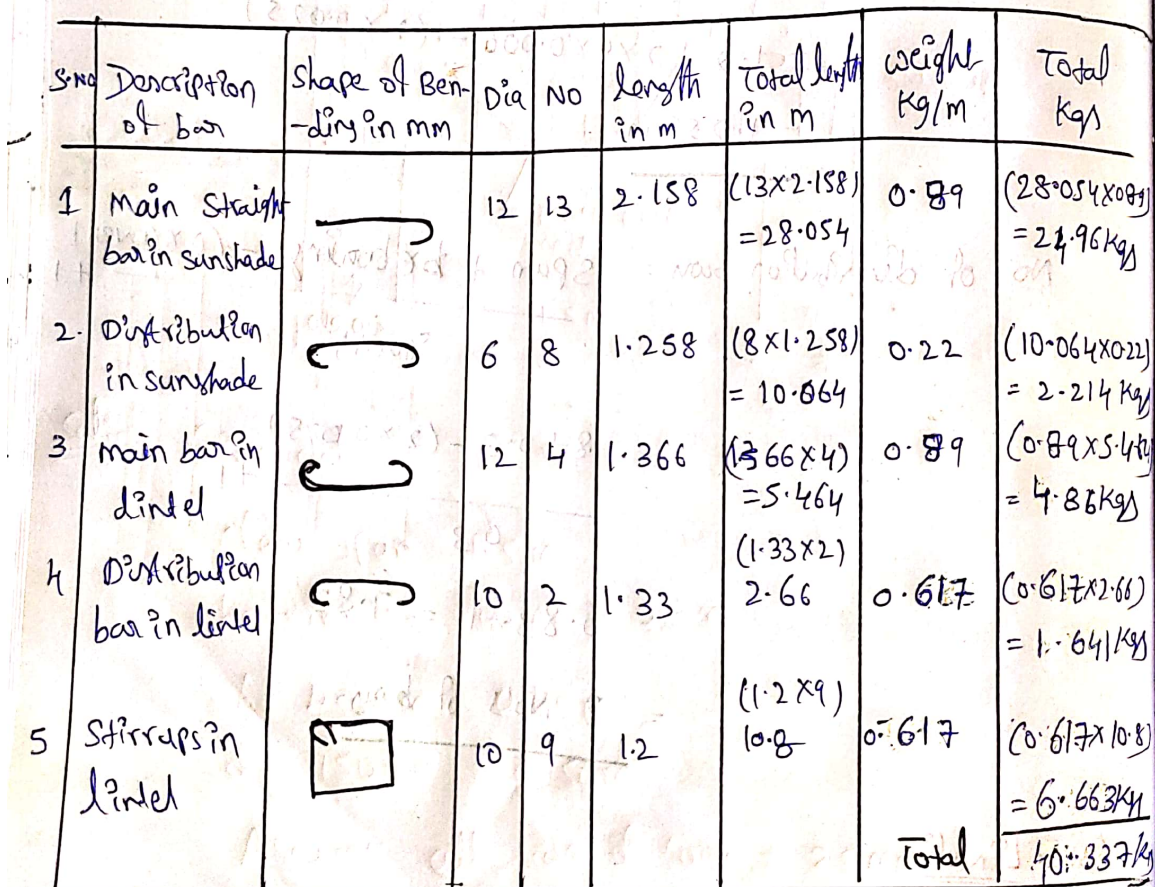 S.No Description of bar Shape of Ben-ding in mm Dia NO length in m Total length in m weight Kg/m Total Kgs
1 Main Straight bar in sunshade 12 13 2.158 (13x2.158) =28.054 0.89 (28.054x0.89) =24.96Kgs
2. Distribution in sunshade 6 8 1.258 (8x1.258) = 10.064 0.22 (10.064x0.22) = 2.214 Kgs
3 main bar in dintel 12 4 1.366 (1366x4) =5.464 0.89 (0.89x5.464) = 4.86Kgs
4 Distribution bar in lintel 10 2 1.33 (1.33x2) 2.66 0.617 (0.617x2.66) = 1.641Kgs
5 Stirrups in lintel 10 9 1.2 (1.2x9) 10.8 0.617 (0.617x10.8) = 6.663Kgs
Total 40.337Kg